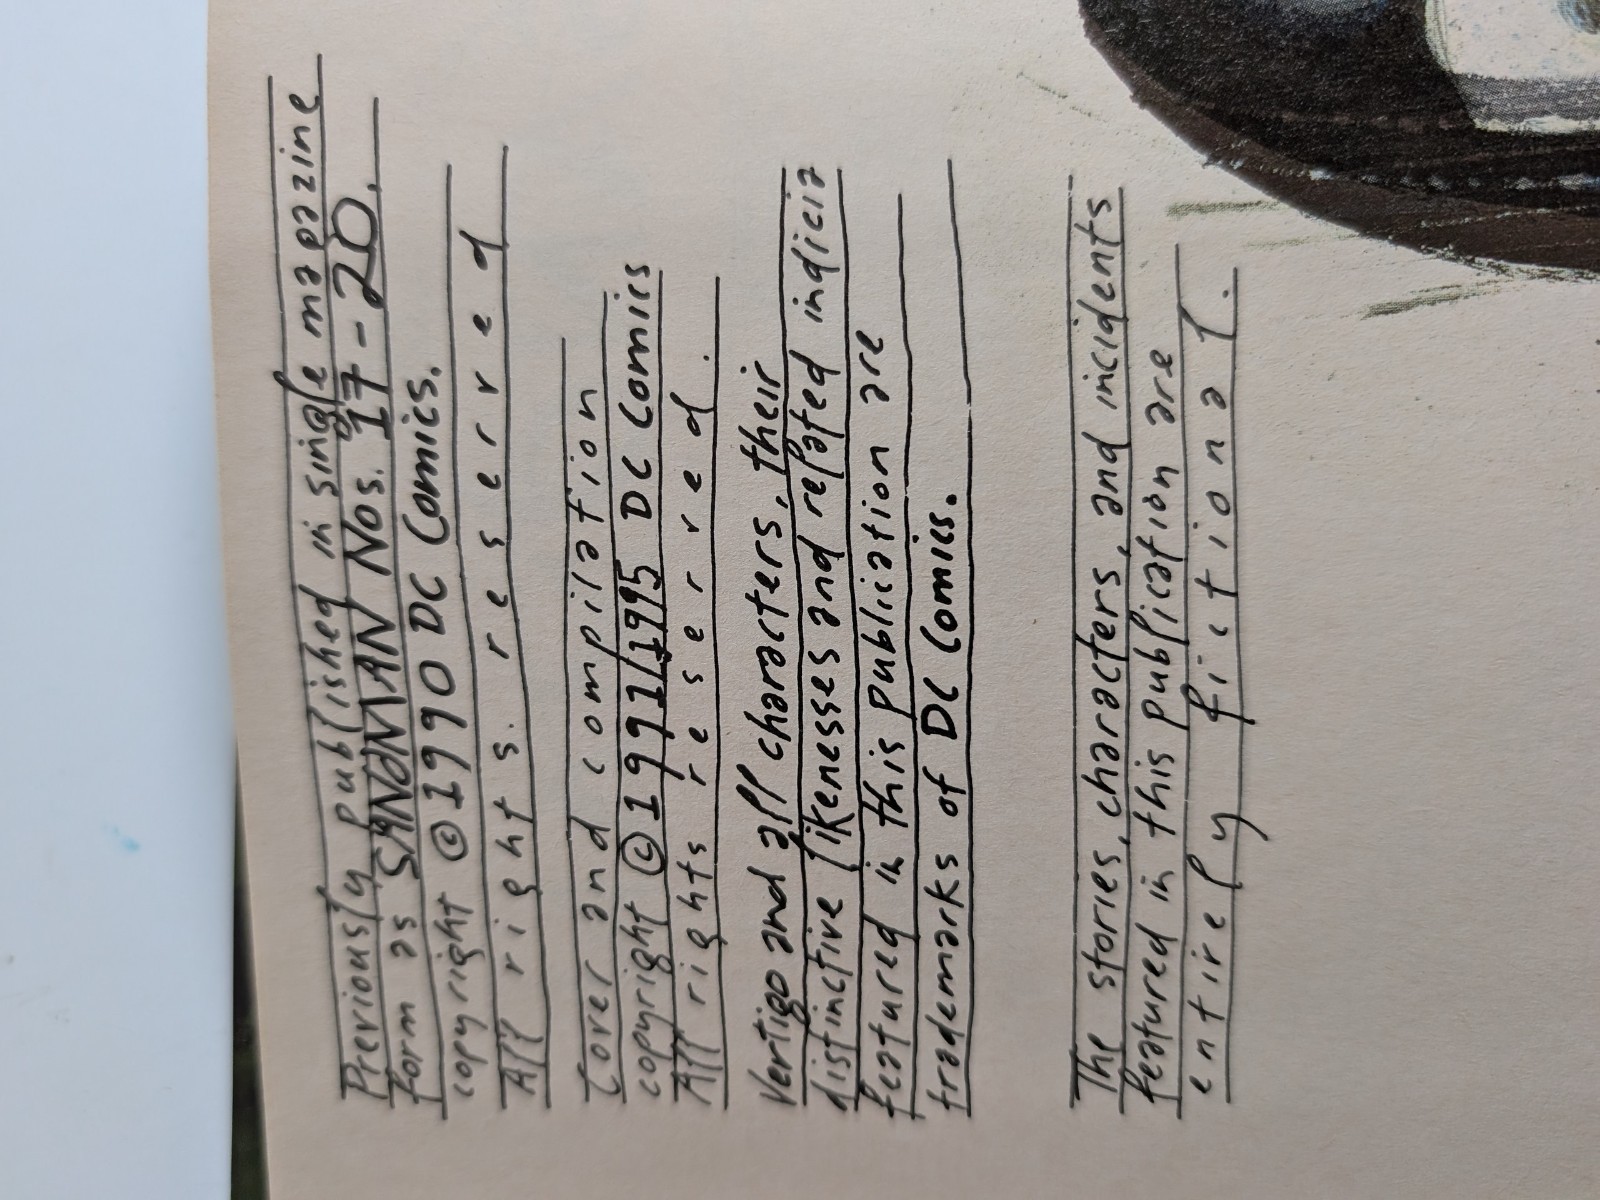 Previously published in single magazine
form as SANDMAN Nos. 17-20,
copyright © 1990 DC Comics.
All rights. reserved
Cover and compilation
copyright © 1991/1995 DC Comics
All rights reserved.
Vertigo and all characters, their
distinctive likenesses and related indicia
featured in this publication are
trademarks of DC Comics.
The stories, characters, and incidents
featured in this publication are
entirely fictional.